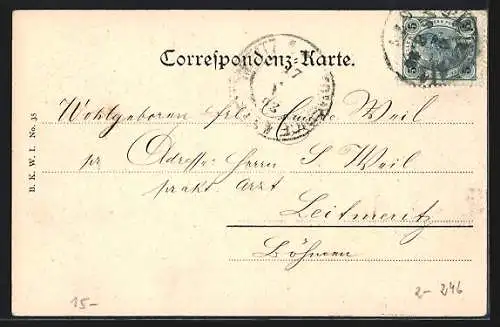 Correspondenz-Karte.
Wohlgeboren Frl. Weil
pr Adresse: Herrn S Weil
prakt. Arzt
Leitmeritz
Böhmen
B. K. W. I. No. 35
15- 2- 246